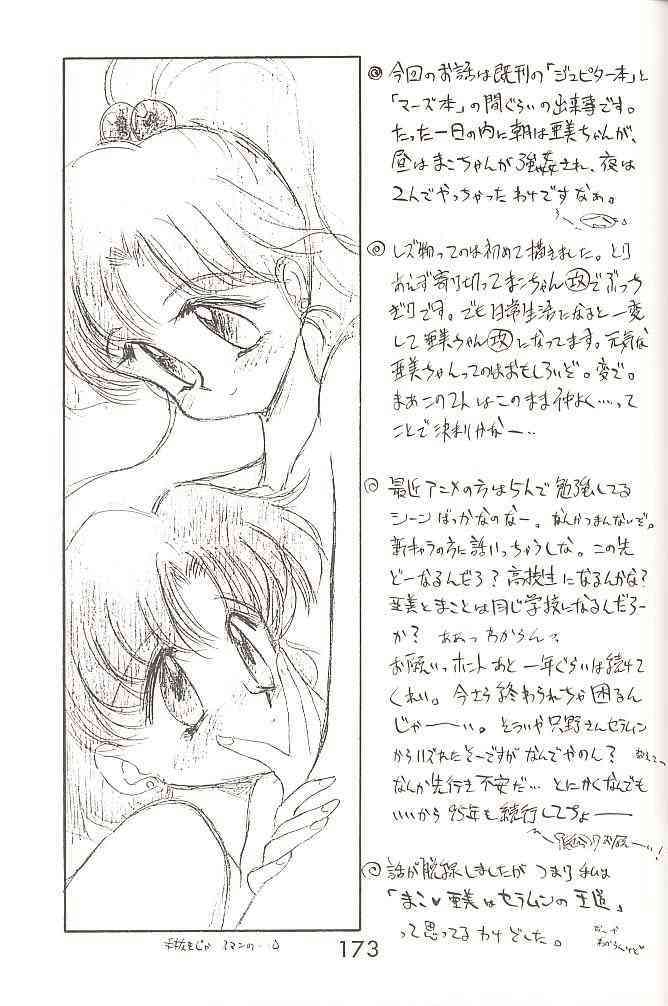 今回のお話は既刊の「ジュピター本」と
「マーズ本」の間ぐらいの出来事です。
たった一日の内に朝は亜美ちゃんが、
昼はまこちゃんが強姦され、夜は
2人でやっちゃったわけですなぁ。
レズ物ってのは初めて描きました。とり
あえず寄り切ってまこちゃん攻でぶっち
ぎりです。でも日常生活になると一変
して亜美ちゃん攻になってます。元気な
亜美ちゃんってのはおもしろいぞ。変で。
まあこの2人はこのまま仲よく…って
ことで決まりかなー…
最近アニメの方は5人で勉強してる
シーンばっかなのなー。なんかつまんないぞ。
新キャラの方に話いっちゃうしな。この先
どーなるんだろ?高校生になるんかな?
亜美とまことは同じ学校になるんだろー
か?ああっわからん
お願いっホントあと一年ぐらいは続けて
くれい。今さら終わられちゃ困るん
じゃーーい。そういや只野さんセラムン
からハズれたそーですがなんでやのん?
なんか先行き不安だ…とにかくなんでも
いいから95年も続行してちょーー
お願ーい!
話が脱線しましたがつまり私は
「まこ♥亜美はセラムンの王道」
って思ってるわけでした。
なんか
わからんけど
173